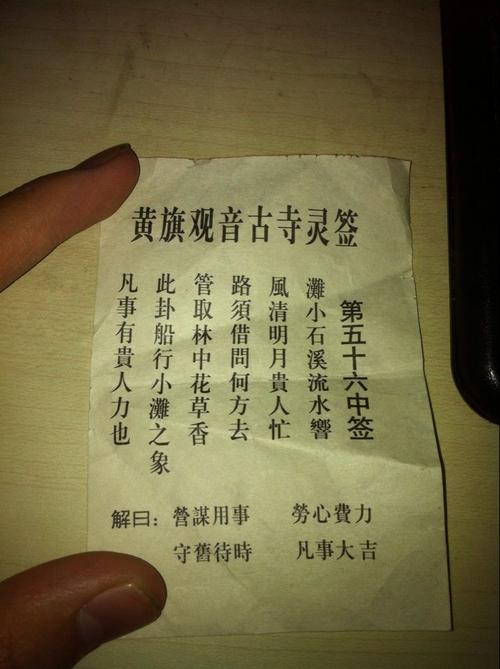 黄旗观音古寺灵签
第五十六中签
灘小石溪流水響
風清明月貴人忙
路須借問何方去
管取林中花草香
此卦船行小灘之象
凡事有貴人力也
解曰：營謀用事 勞心費力
守舊待時 凡事大吉